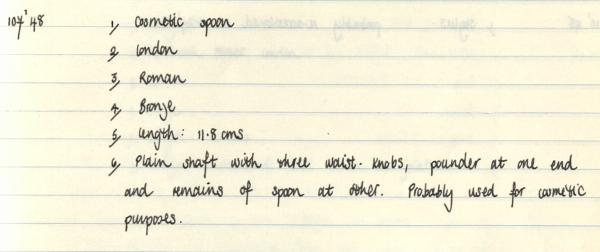 107'48 1, Cosmetic spoon
2, London
3, Roman
4, Bronze
5, Length: 11.8 cms
6, Plain shaft with three waist-knobs, pounder at one end
and remains of spoon at other. Probably used for cosmetic
purposes.